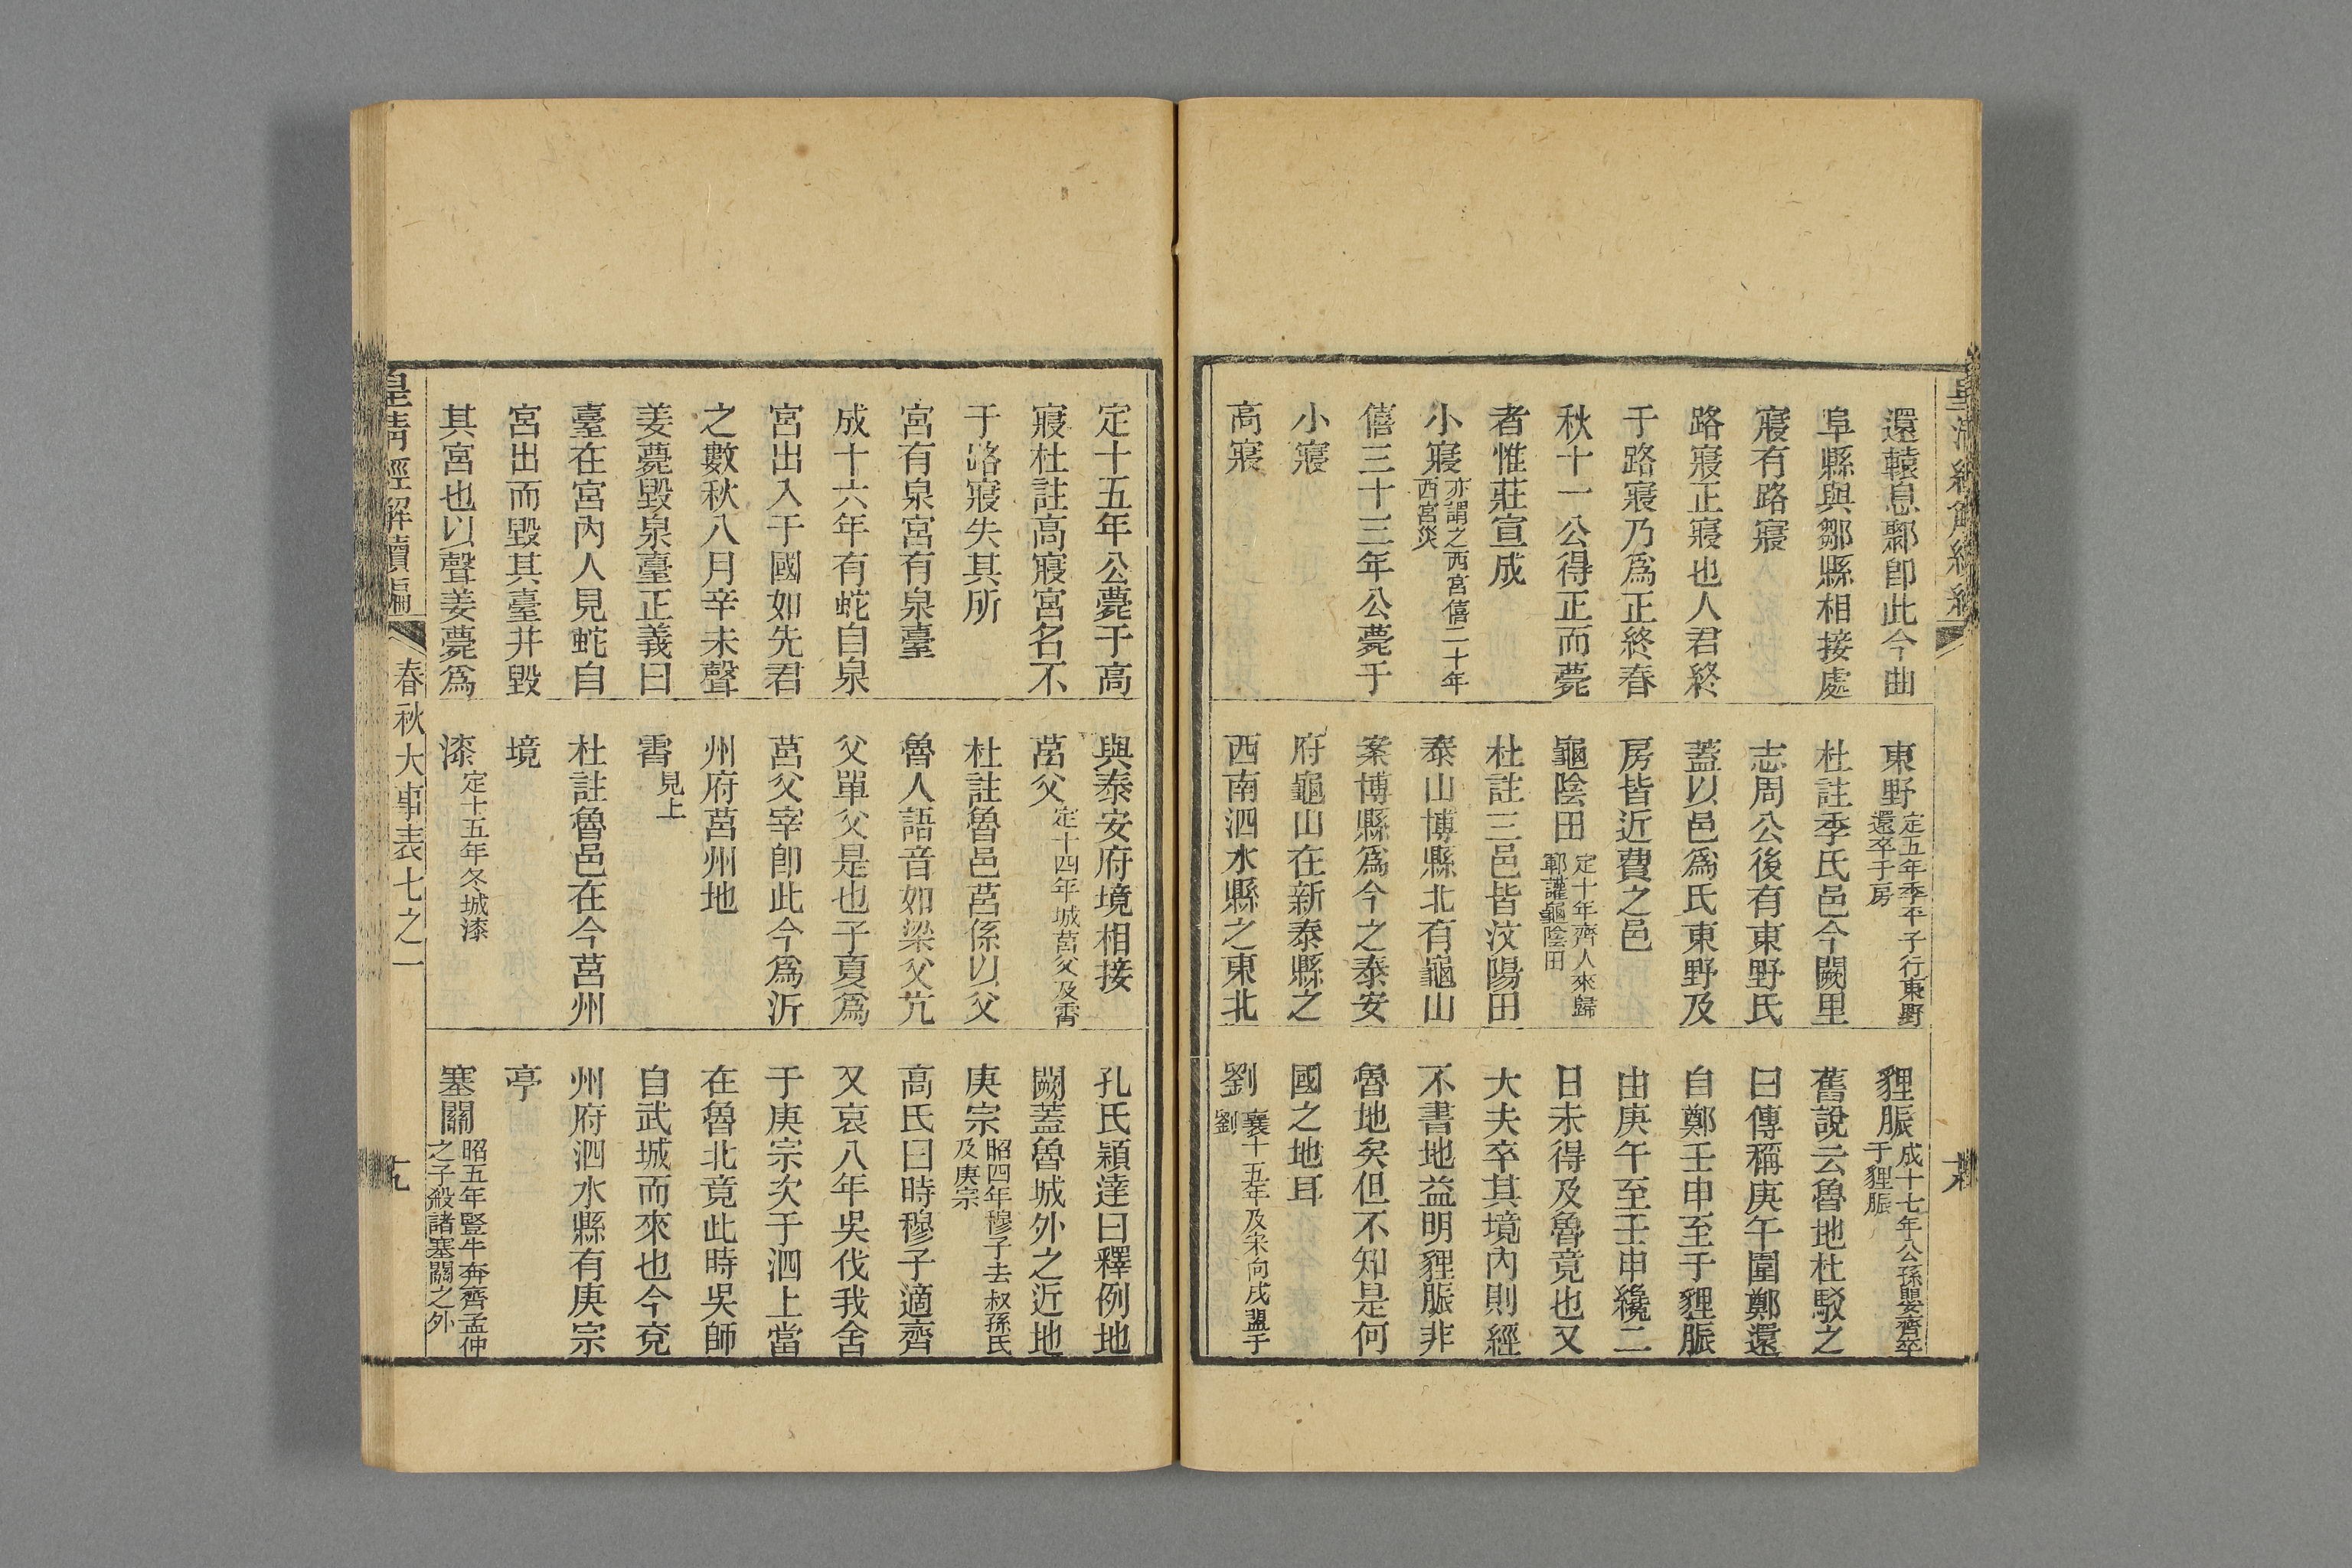 皇清經解續編
還轅息鄹卽此今曲
阜縣與鄒縣相接處
寢有路寢
路寢正寢也人君終
于路寢乃爲正終春
秋十一公得正而薨
者惟莊宣成
小寢亦謂之西宮僖二十年
西宮災
僖三十三年公薨于
小寢
高寢
東野定五年季平子行東野
還卒于房
杜註季氏邑今闕里
志周公後有東野氏
蓋以邑爲氏東野及
房皆近費之邑
龜陰田定十年齊人來歸
鄆讙龜陰田
杜註三邑皆汶陽田
泰山博縣北有龜山
案博縣爲今之泰安
府龜山在新泰縣之
西南泗水縣之東北
貍脤成十七年公孫嬰齊卒
于貍脤
舊說云魯地杜駁之
曰傳稱庚午圍鄭還
自鄭壬申至于貍脤
由庚午至壬申纔二
日未得及魯竟也又
大夫卒其境內則經
不書地益明貍脤非
魯地矣但不知是何
國之地耳
劉襄十五年及宋向戌盟于
劉
定十五年公薨于高
寢杜註高寢宮名不
于路寢失其所
宮有泉宮有泉臺
成十六年有蛇自泉
宮出入于國如先君
之數秋八月辛未聲
姜薨毀泉臺正義曰
臺在宮內人見蛇自
宮出而毀其臺并毀
其宮也以聲姜薨爲
與泰安府境相接
莒父定十四年城莒父及霄
杜註魯邑莒係以父
魯人語音如梁父亢
父單父是也子夏爲
莒父宰卽此今爲沂
州府莒州地
霄見上
杜註魯邑在今莒州
境
漆定十五年冬城漆
孔氏穎達曰釋例地
闕蓋魯城外之近地
庚宗昭四年穆子去叔孫氏
及庚宗
高氏曰時穆子適齊
又哀八年吳伐我舍
于庚宗次于泗上當
在魯北竟此時吳師
自武城而來也今兗
州府泗水縣有庚宗
亭
塞關昭五年豎牛奔齊孟仲
之子殺諸塞關之外
皇淸經解續編
春秋大事表七之一